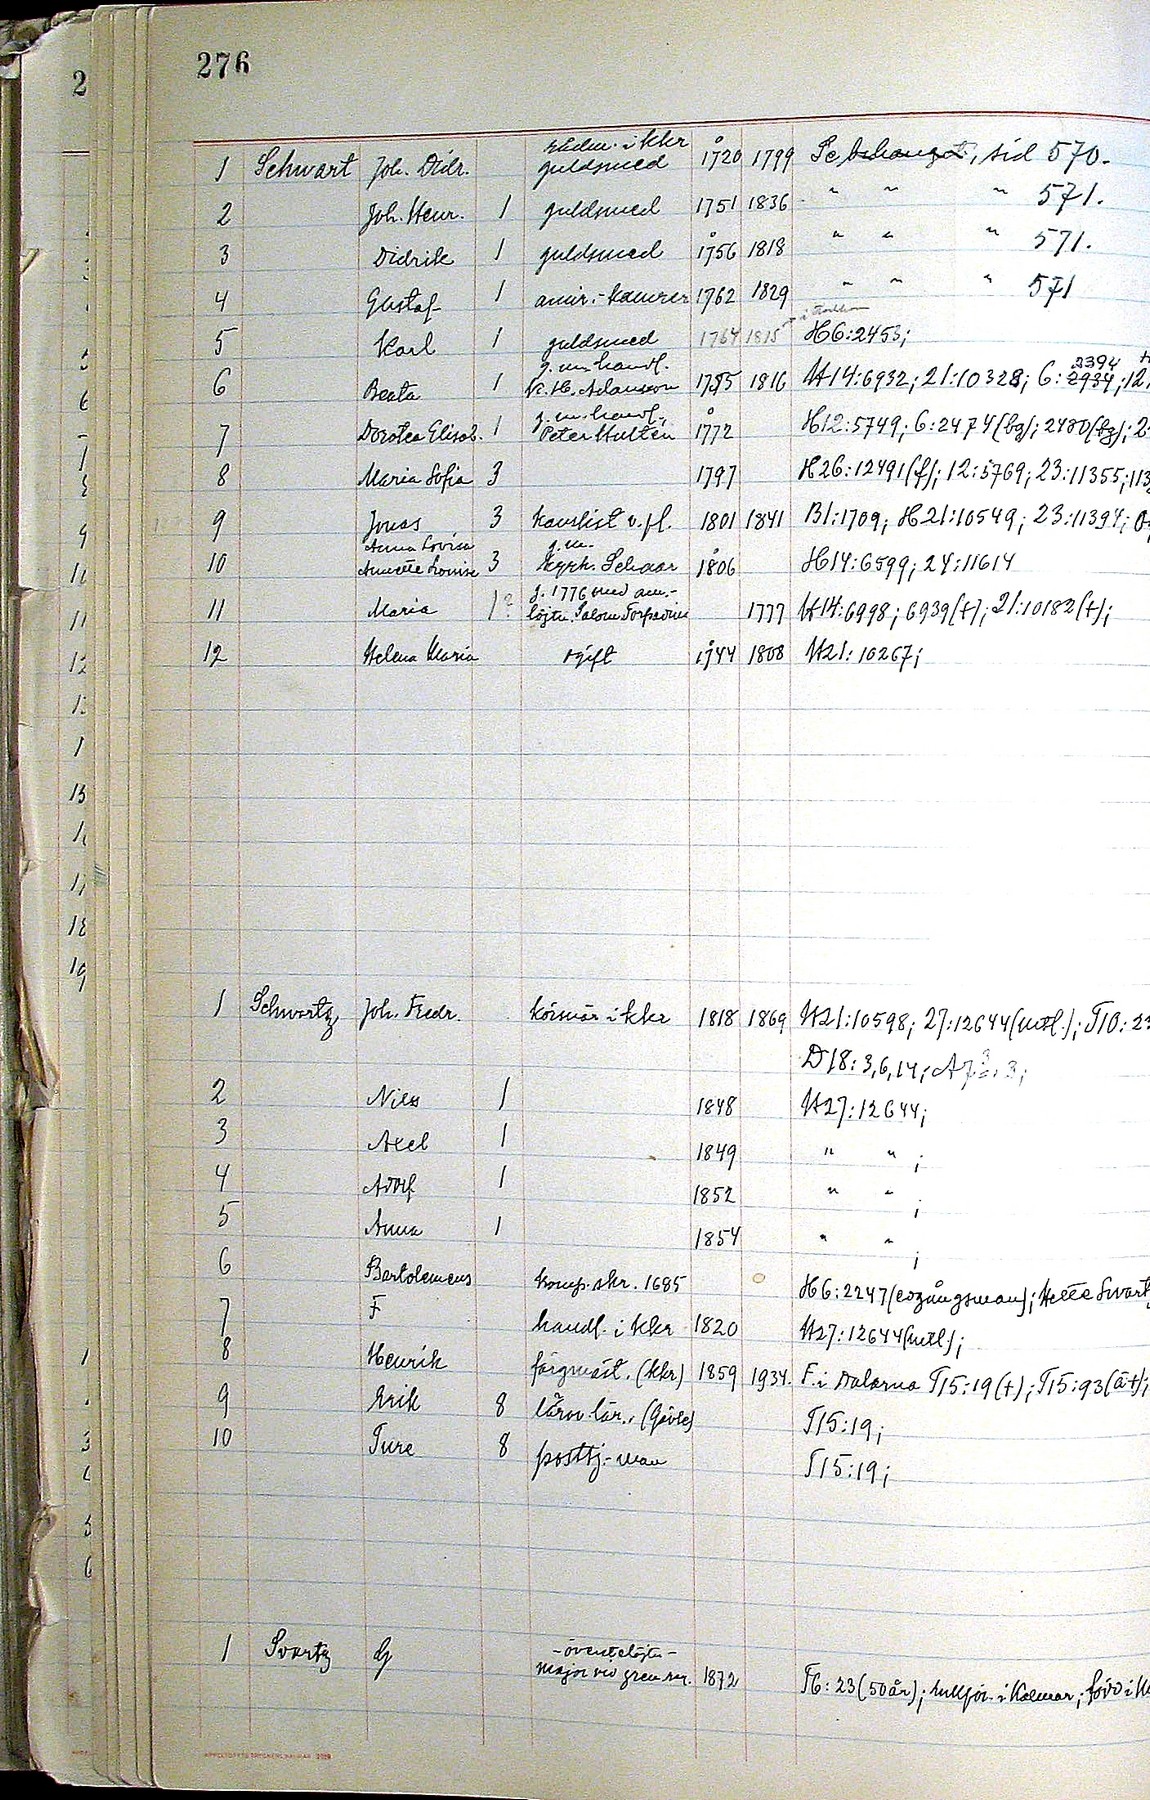 276
2
rådm. i kkr
1 Schwart Joh. Didr. guldsmed 1720 1799 Se bihanget, sid 570.
2 Joh. Henr. 1 guldsmed 1751 1836 " " " 571.
3 Didrik 1 guldsmed 1756 1818 " " " 571.
4 Gustaf 1 amir.-kamrer 1762 1829 " " " 571
5 Karl 1 guldsmed 1764 1815 H6:2453;
g. m. handl.
2394
6 Beata 1 K. H. Adamson 1755 1816 H14:6932; 21:10328; 6:2934; 12
g. m. handl.
7 Dorotea Elisab. 1 Peter Hultén 1772 H12:5749; 6:2474(bg); 2480(bg);
8 Maria Sofia 3 1797 H26:12491(f); 12:5769; 23:11355; 113
9 Jonas 3 kanslist v. fl. 1801 1841 B1:1709; H21:10549; 23:11394;
Anna Lovisa g. m.
10 Annette Louise 3 kyrkh. Schaar 1806 H14:6599; 24:11614
g. 1776 med am.-
11 Maria 1? löjtn. Salom Torpadius 1777 H14:6998; 6939(+); 21:10182(+);
12 Helena Maria ogift 1744 1808 H21:10267;
1 Schwartz Joh. Fredr. körsnär i kkr 1818 1869 H21:10598; 27:12644(mtl.); T10:23
D18:3,6,14;
2 Nils 1 1848 H27:12644;
3 Axel 1 1849 " " ;
4 Adolf 1 1852 " " ;
5 Anna 1 1854 " " ;
6 Bartolomeus komp. skr. 1685 H6:2247(eogångsman); Hette Svart
7 F handl. i kkr 1820 H27:12644(mtl.);
8 Henrik färgmäst. (kkr) 1859 1934. F. i Dalarna T15:19(+); T15:93(ä+);
9 Erik 8 lärov. lär., (Gävle) T15:19;
10 Ture 8 posttj.-man T15:19;
-överstelöjtn-
1 Svartz G major vid gren.reg. 1872 T6:23(50 år); rullför. i Kalmar; född i
APPELTOFFTS TRYCKERI, KALMAR